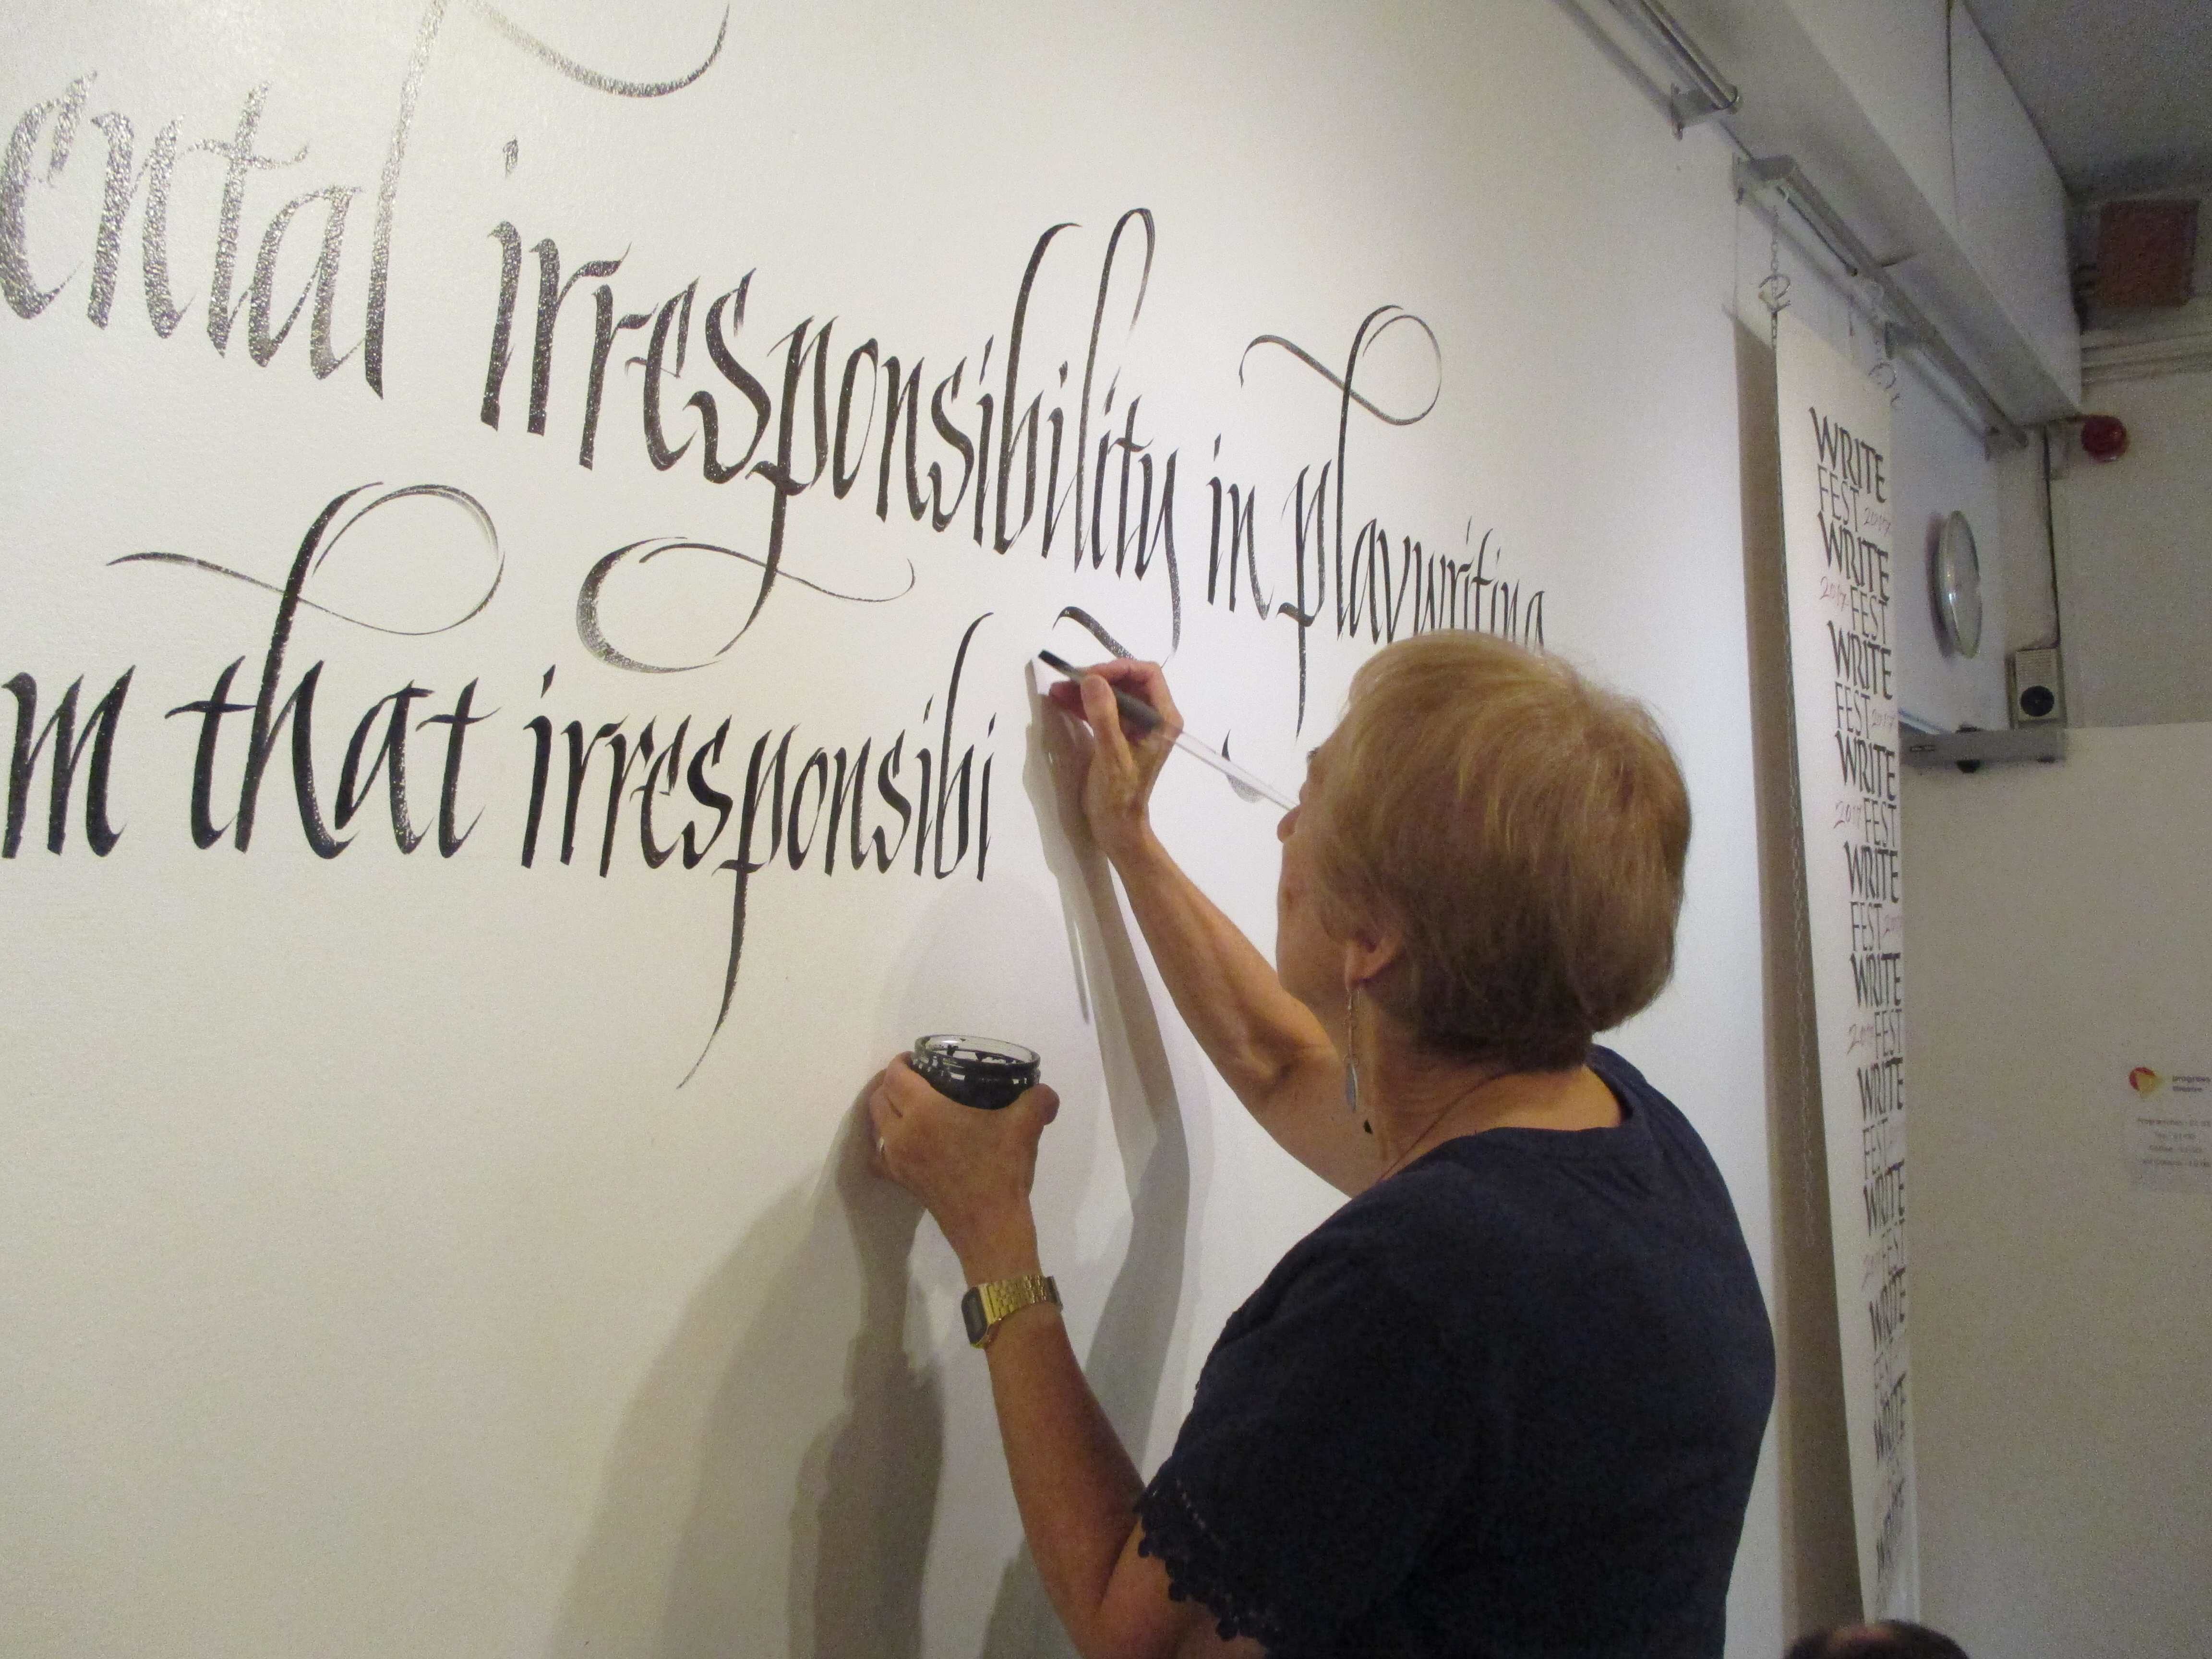 ental irresponsibility in playwriting
m that irresponsibi
WRITE
FEST 2017
WRITE
2017 FEST
WRITE
FEST 2017
WRITE
2017 FEST
WRITE
FEST 2017
WRITE
2017 FEST
WRITE
FEST
WRITE
FEST
WRITE
FEST
WRITE
WRITE
progress
theatre